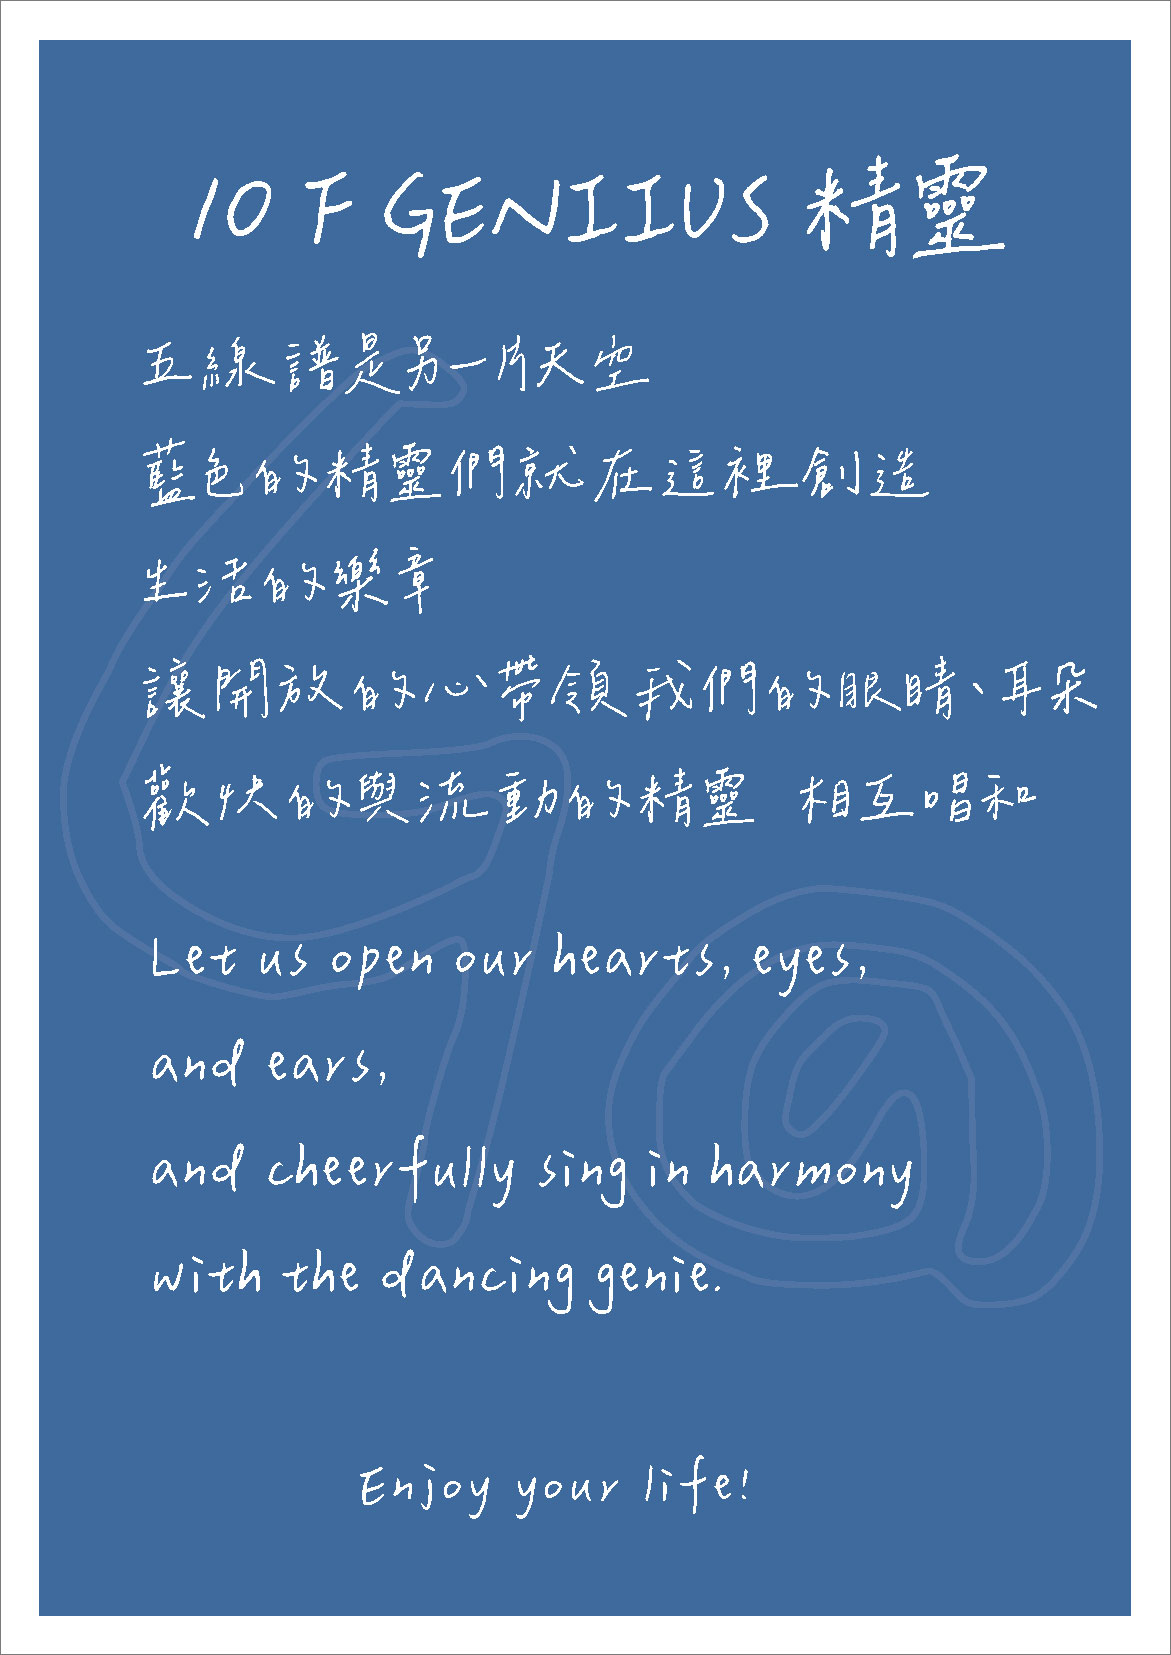 10 F GENIIUS 精靈
五線譜是另一片天空
藍色的精靈們就在這裡創造
生活的樂章
讓開放的心帶領我們的眼睛、耳朵
歡快的與流動的精靈 相互唱和
Let us open our hearts, eyes,
and ears,
and cheerfully sing in harmony
with the dancing genie.
Enjoy your life!